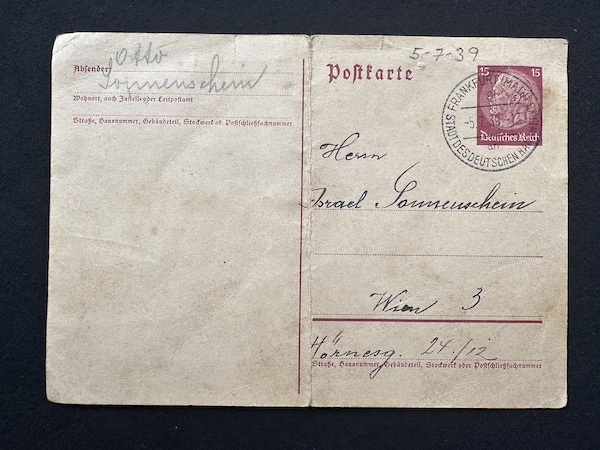 Otto
Absender: Sonnenschein
Wohnort, auch Zustell- oder Leitpostamt
Straße, Hausnummer, Gebäudeteil, Stockwerk od. Postschließfachnummer
5-7-39
Postkarte
15 15
Deutsches Reich
FRANKFURT (MAIN)
STADT DES DEUTSCHEN HA
-5
Herrn
Israel Sonnenschein
Wien 3
Hörnesg. 24./12
Straße, Hausnummer, Gebäudeteil, Stockwerk oder Postschließfachnummer